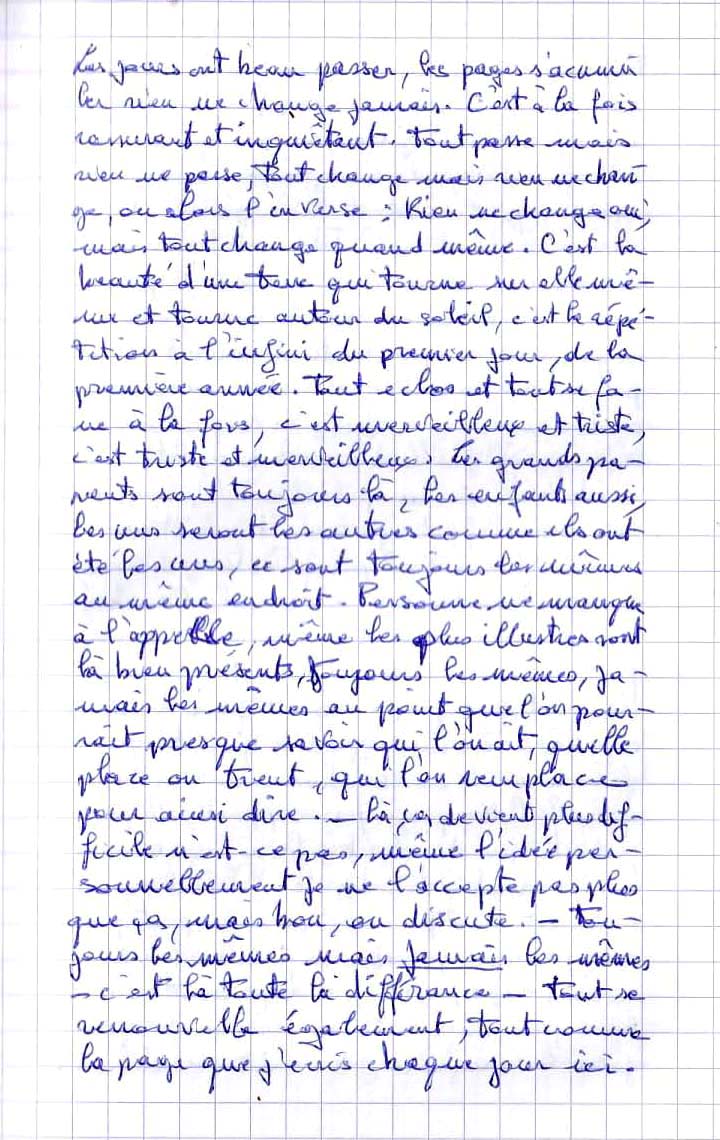 Les jours ont beau passer, les pages s'acumu
ler rien ne change jamais. C'est à la fois
rassurant et inquiétant. Tout passe mais
rien ne passe, tout change mais rien ne chan
ge, ou alors l'inverse : Rien ne change oui,
mais tout change quand même. C'est la
beauté d'une terre qui tourne sur elle mê-
me et tourne autour du soleil, c'est la répé-
tition à l'infini du premier jour, de la
première année. Tout eclos et tout se fa-
ne à la fois, c'est merveilleux et triste,
c'est triste et merveilleux. Les grands pa-
rents sont toujours là, les enfants aussi,
les uns seront les autres comme ils ont
été les uns, ce sont toujours les mêmes
au même endroit. Personne ne manque
à l'appelle, même les plus illustres sont
là bien présents, toujours les mêmes, ja-
mais les mêmes au point que l'on pour-
rait presque savoir qui l'on ait, quelle
place on tient, qui l'on remplace
pour ainsi dire. – Là, ça devient plus dif-
ficile n'est-ce pas, même l'idée per-
sonnellement je ne l'accepte pas plus
que ça, mais bon, on discute. – Tou-
jours les mêmes mais jamais les mêmes
– c'est là toute la différance – Tout se
renouvelle également, tout comme
la page que j'écris chaque jour ici.